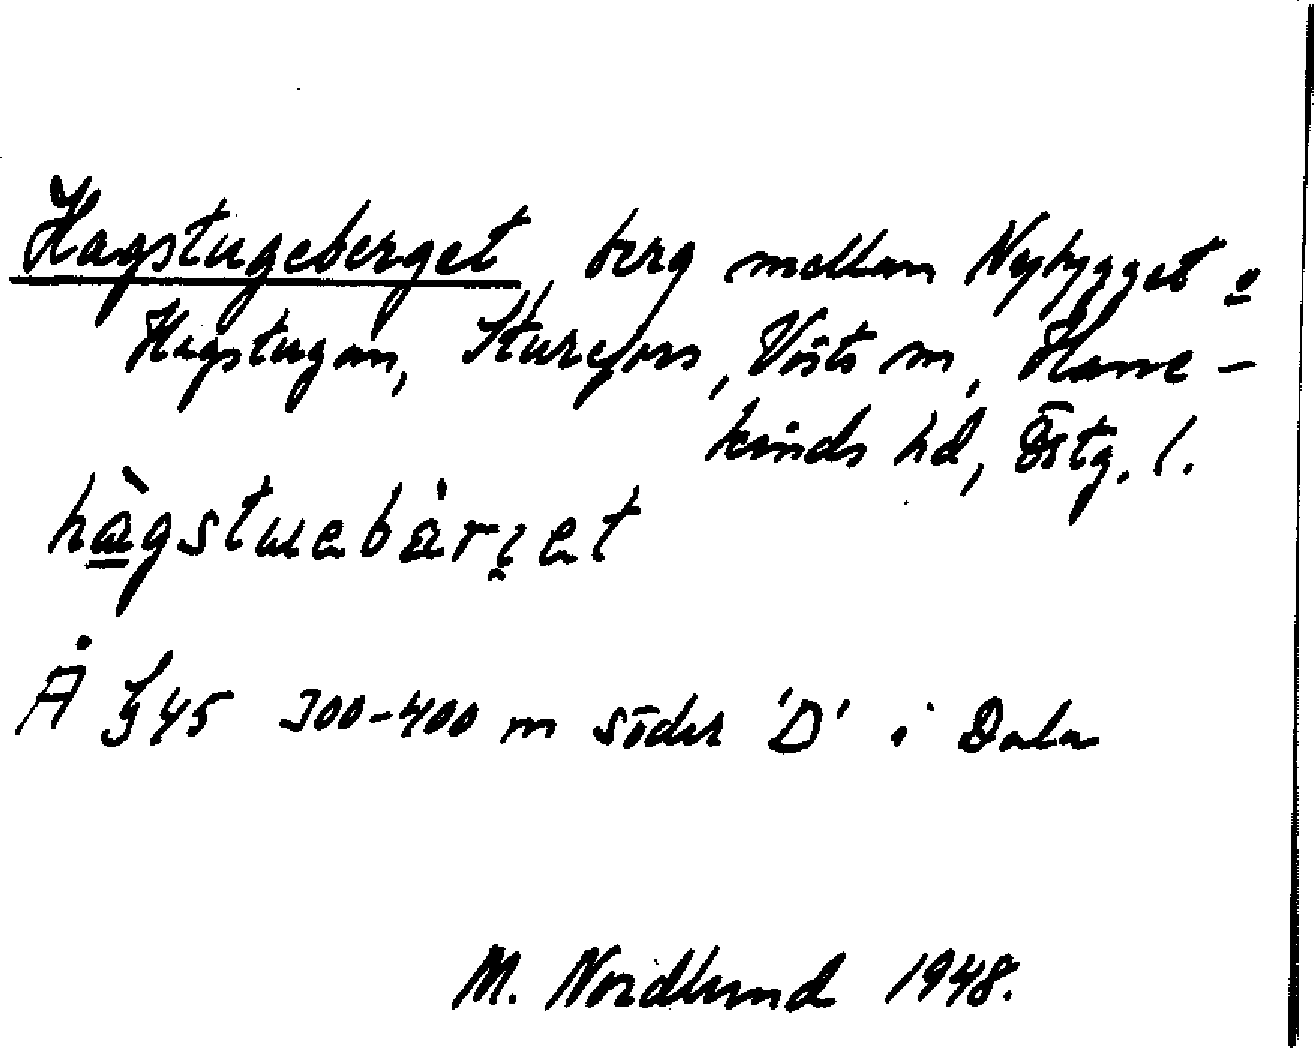 Hagstugeberget, berg mellan Nybygget o
Hagstugan, Sturefors, Vists sn, Hane-
kinds hd, Östg. l.
hàgstuebàrjet
Å 945 300-400 m söder 'D' i Dala
M. Nordlund 1948.